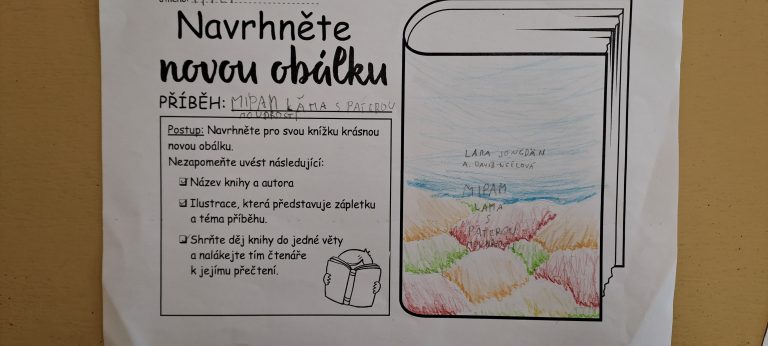 Navrhněte
novou obálku
PŘÍBĚH: MIPAM LÁMA S PATEROU
MOUDROSTÍ
Postup: Navrhněte pro svou knížku krásnou
novou obálku.
Nezapomeňte uvést následující:
Název knihy a autora
Ilustrace, která představuje zápletku
a téma příběhu.
Shrňte děj knihy do jedné věty
a nalákejte tím čtenáře
k jejímu přečtení.
LÁMA
A. DAVID
MIPAM
LAMA
S
PATEROU